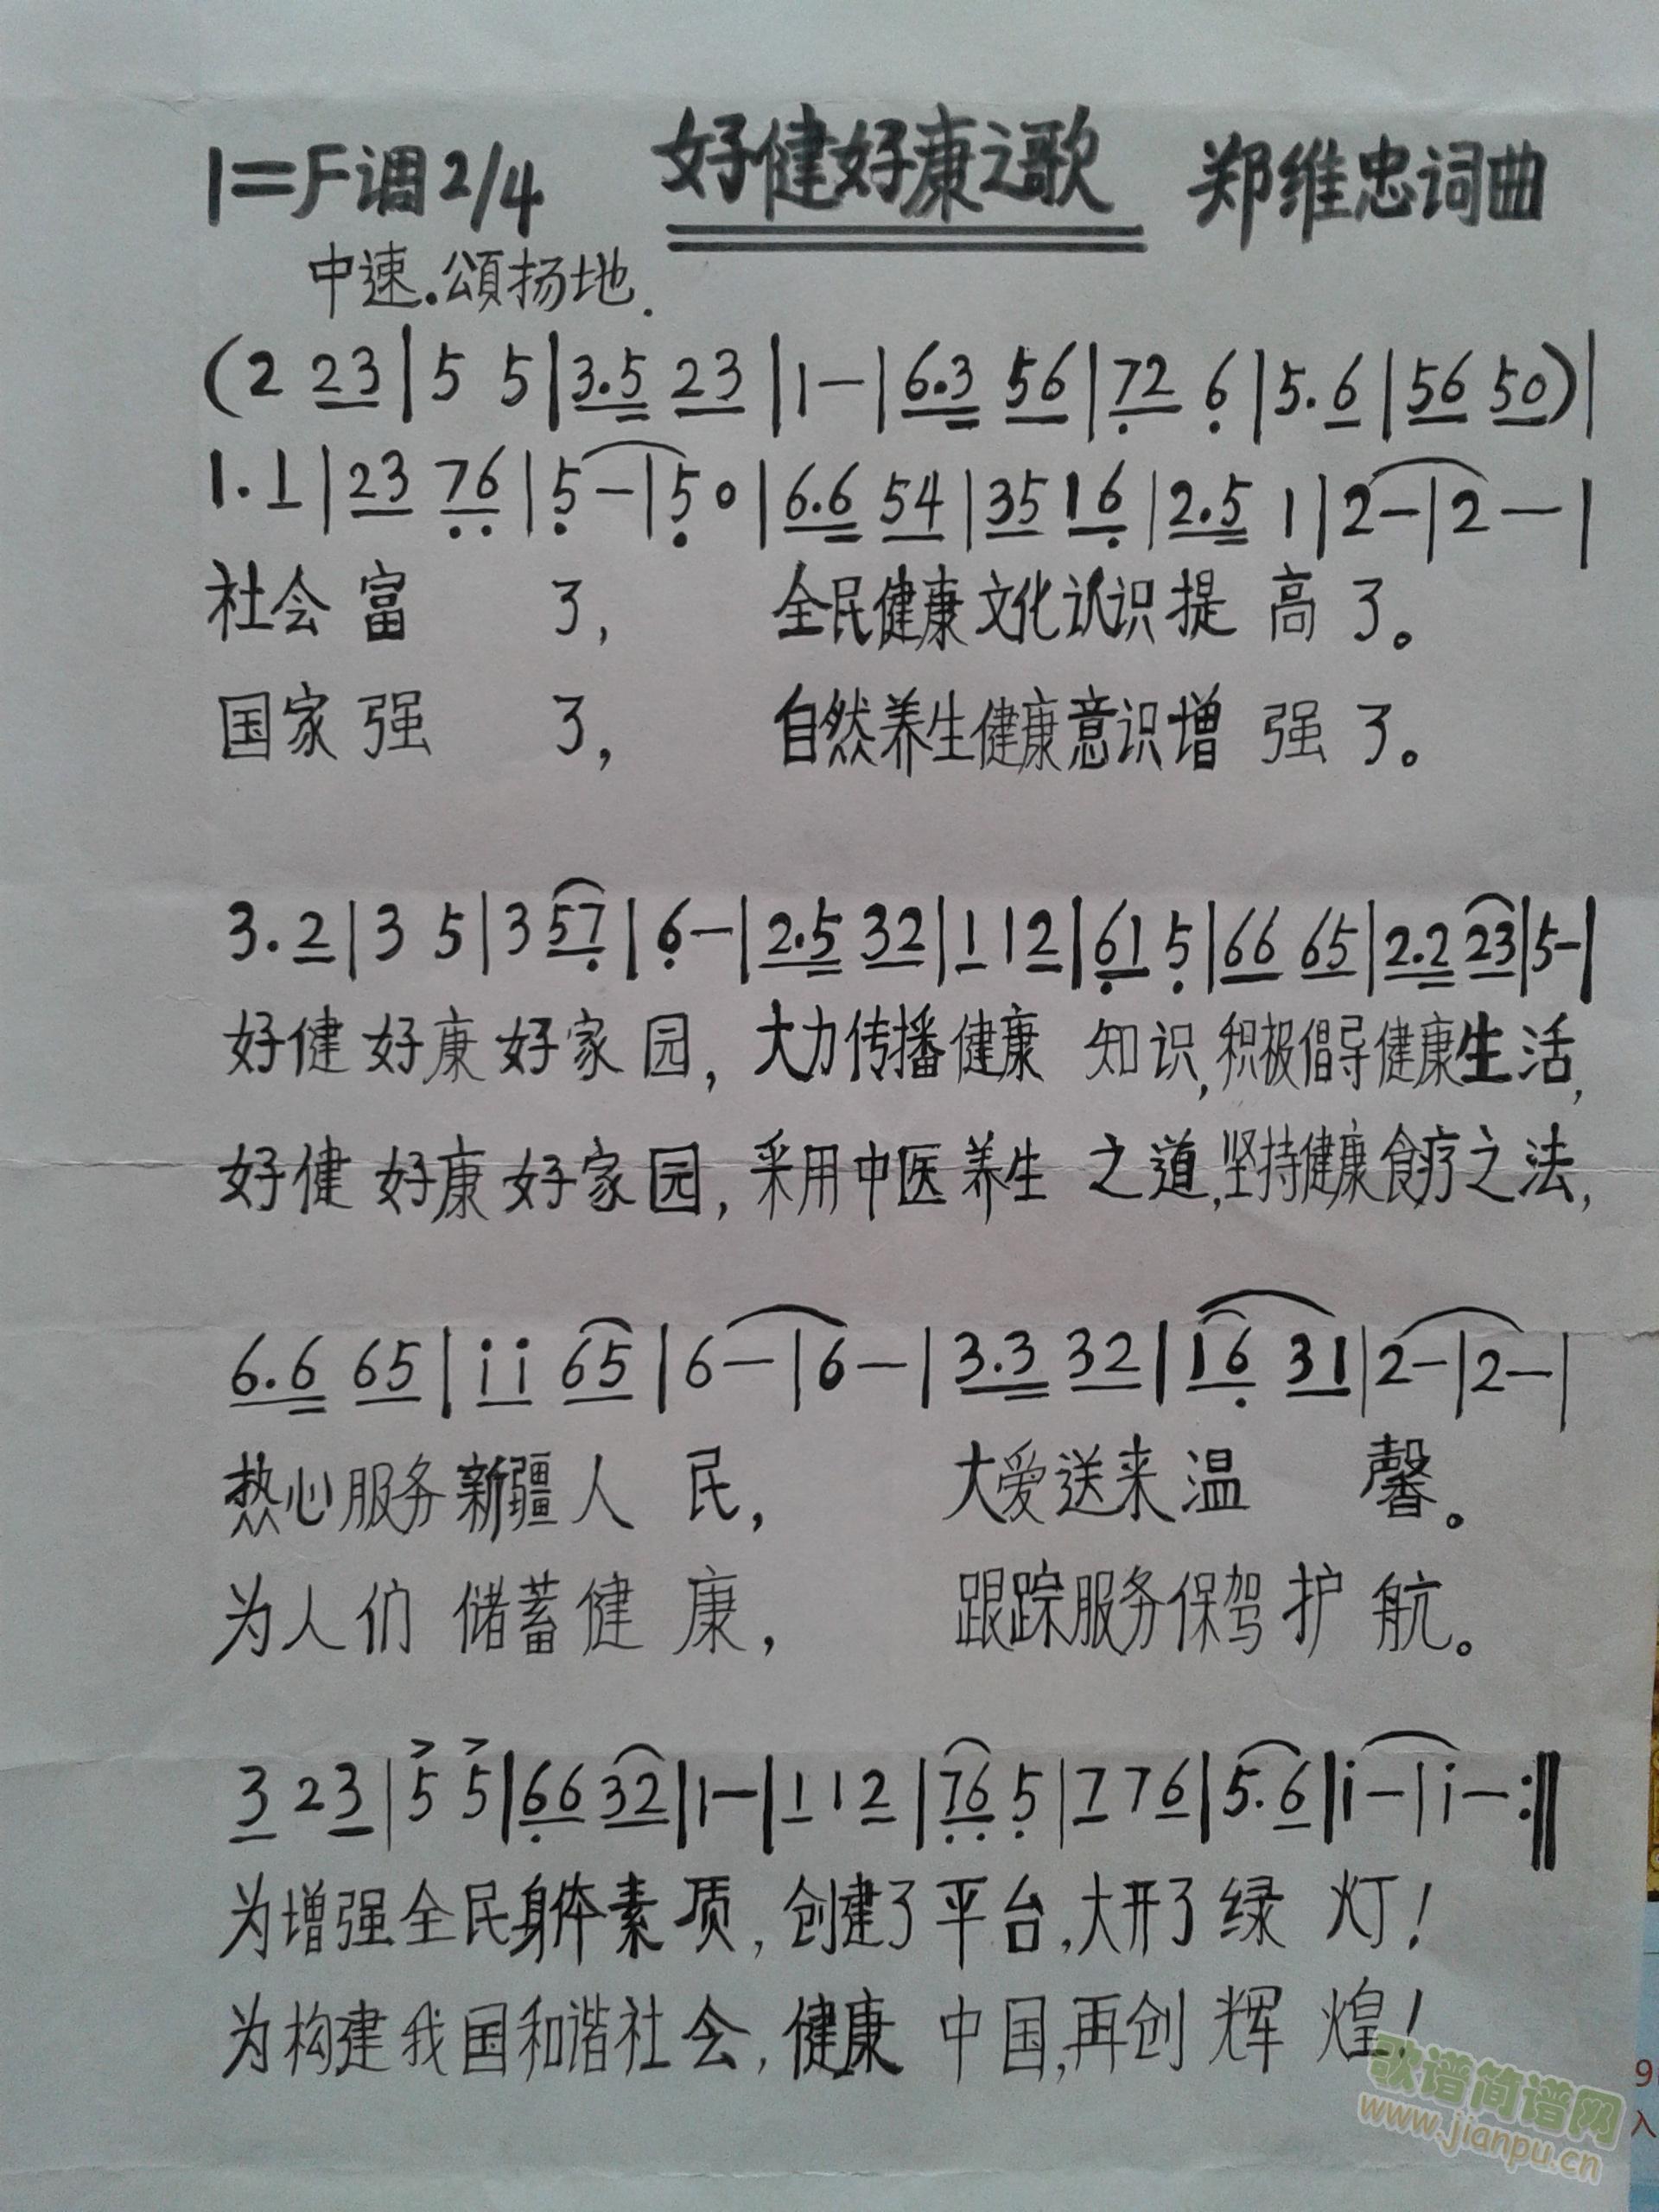 1=F调2/4 好健好康之歌 郑维忠词曲
中速.頌扬地.
(2 23|5 5|3.5 23|1-|6.3 56|72 6|5.6|56 50)|
1.1|23 76|5-|5 0|6.6 54|35 16|2.5 1|2-|2-|
社会富 了, 全民健康文化认识提高了。
国家强 了, 自然养生健康意识增强了。
3.2|3 5|3 57|6-|2.5 32|1 1 2|61 5|66 65|2.2 23|5-|
好健好康好家园, 大力传播健康 知识,积极倡导健康生活,
好健好康好家园, 采用中医养生 之道,坚持健康食疗之法,
6.6 65|i i 65|6-|6-|3.3 32|16 31|2-|2-|
热心服务新疆人 民, 大爱送来温 馨。
为人们 储蓄健 康, 跟踪服务保驾护 航。
3 2 3|5 5|66 32|1-|1 1 2|76 5|7 7 6|5.6|i-|i-:‖
为增强全民身体素项, 创建了平台,大开了绿 灯!
为构建我国和谐社会, 健康 中国,再创 辉 煌!
歌谱简谱网
www.jianpu.cn
9
入